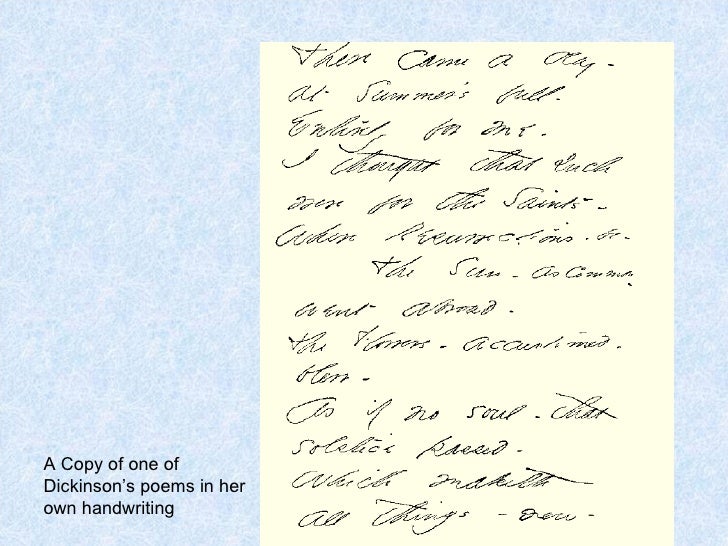 There came a day -
at Summer's full.
Entirely for me.
I thought that such
were for the Saints -
When Resurrections - be -
The Sun - as common
went abroad -
The Flowers - accustomed.
blew -
As if no soul - that
solstice passed -
Which maketh
all things - new -
A Copy of one of
Dickinson's poems in her
own handwriting